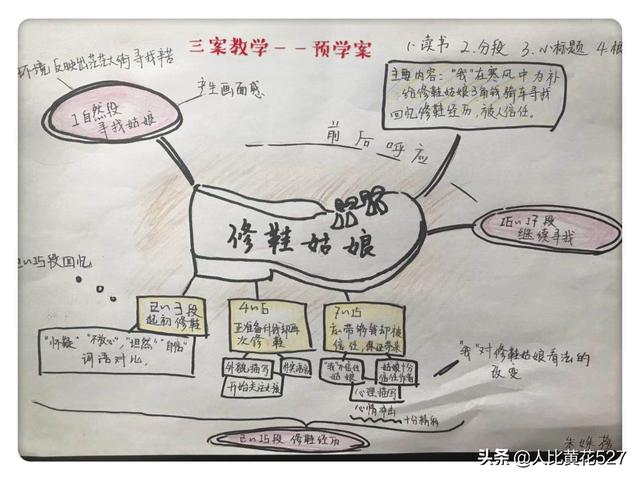 三案教学--预学案
1.读书 2.分段 3.小标题 4.根
环境反映出茫茫大街寻找辛苦
产生画面感
1自然段
寻找姑娘
主要内容:"我"在寒风中为补
给修鞋姑娘3角钱骑车寻找
回忆修鞋经历,被人信任。
前后呼应
修鞋姑娘
16~17段
继续寻找
2~15段回忆
2~3段
起初修鞋
4~6
正准备付钱却再
次修鞋
7~15
信任
"怀疑""不放心","坦然""自信"
词语对比。
外貌描写
开始关注
"我"不信任
姑娘
姑娘十分
心理描写
心情冲击
"我"对修鞋姑娘看法的
改变
2~15段 修鞋经历
头条 @人比黄花527